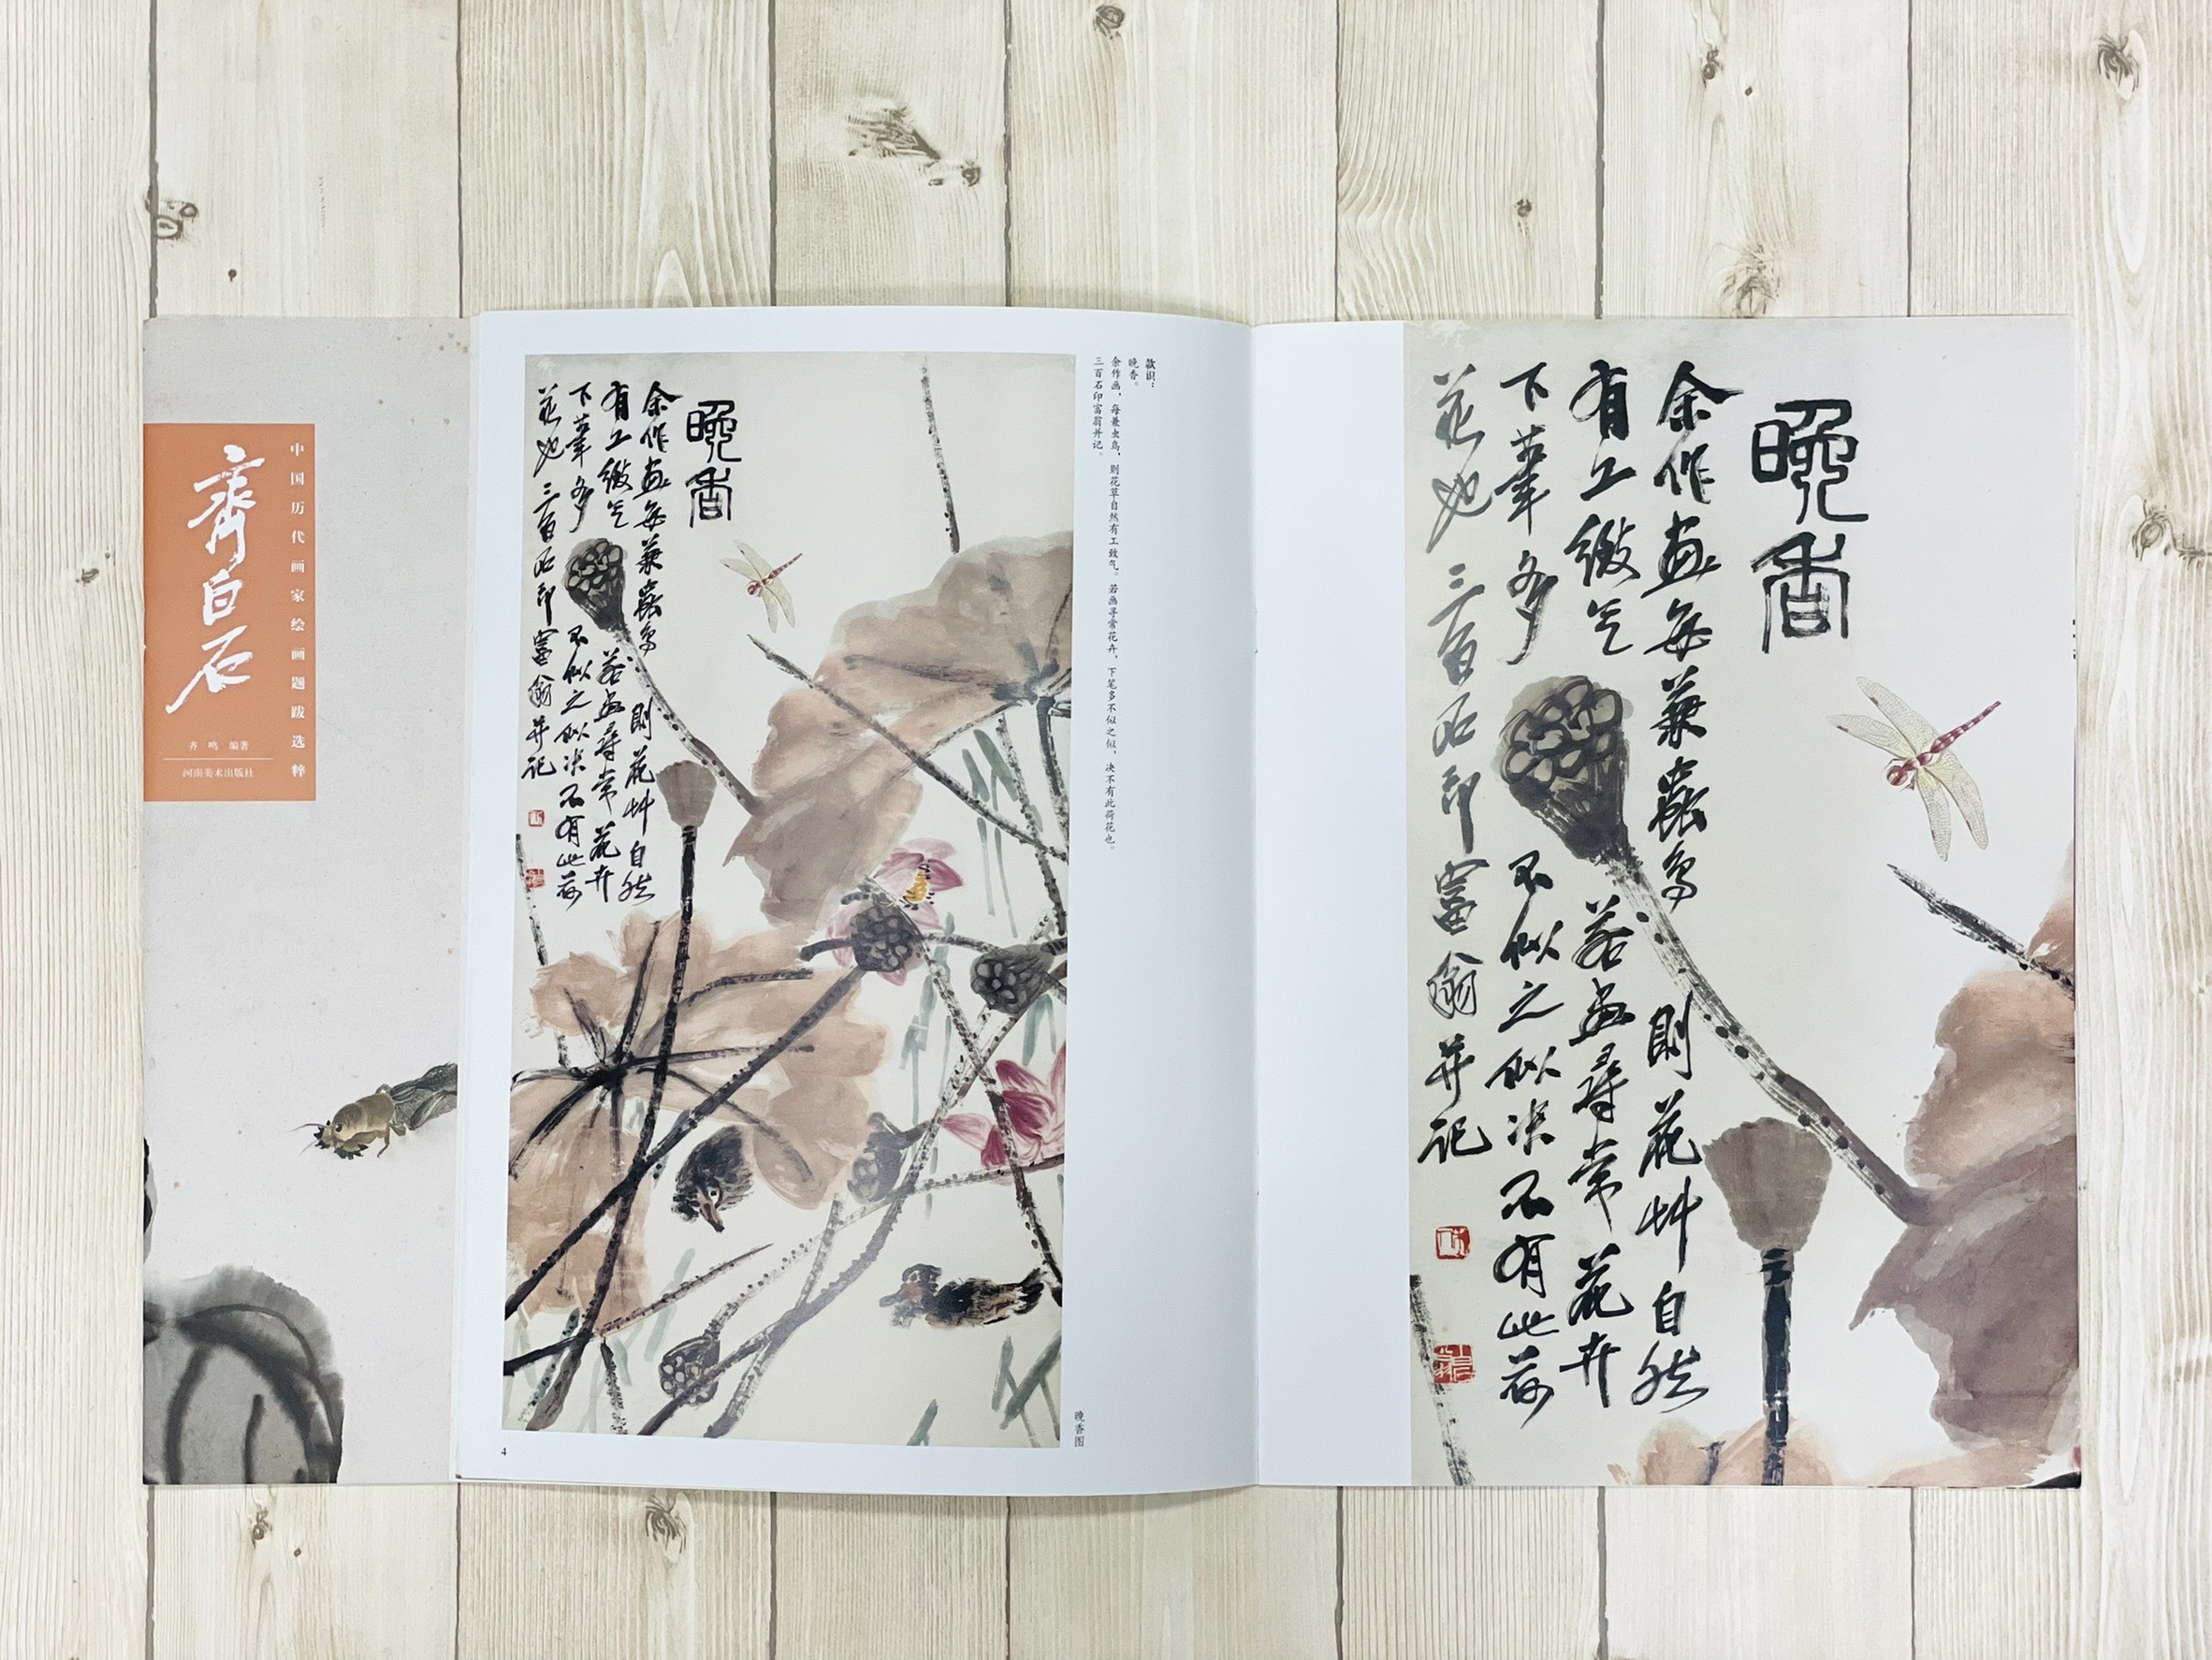 中国历代画家绘画题跋选粹
齐白石
齐 鸣 编著
河南美术出版社
款识：
晚香。
余作画，每兼虫鸟，则花草自然有工致气。若画寻常花卉，下笔多不似之似，决不有此荷花也。
三百石印富翁并记。
晚香
余作画每兼蟲鸟则花艸自然
有工緻气若画尋常花卉
下筆多不似之似决不有此荷
花也三百石印富翁并记
晚香图
4
晚香
余作画每兼蟲鸟则花艸自然
有工緻气若画尋常花卉
下筆多不似之似决不有此荷
花也三百石印富翁并记